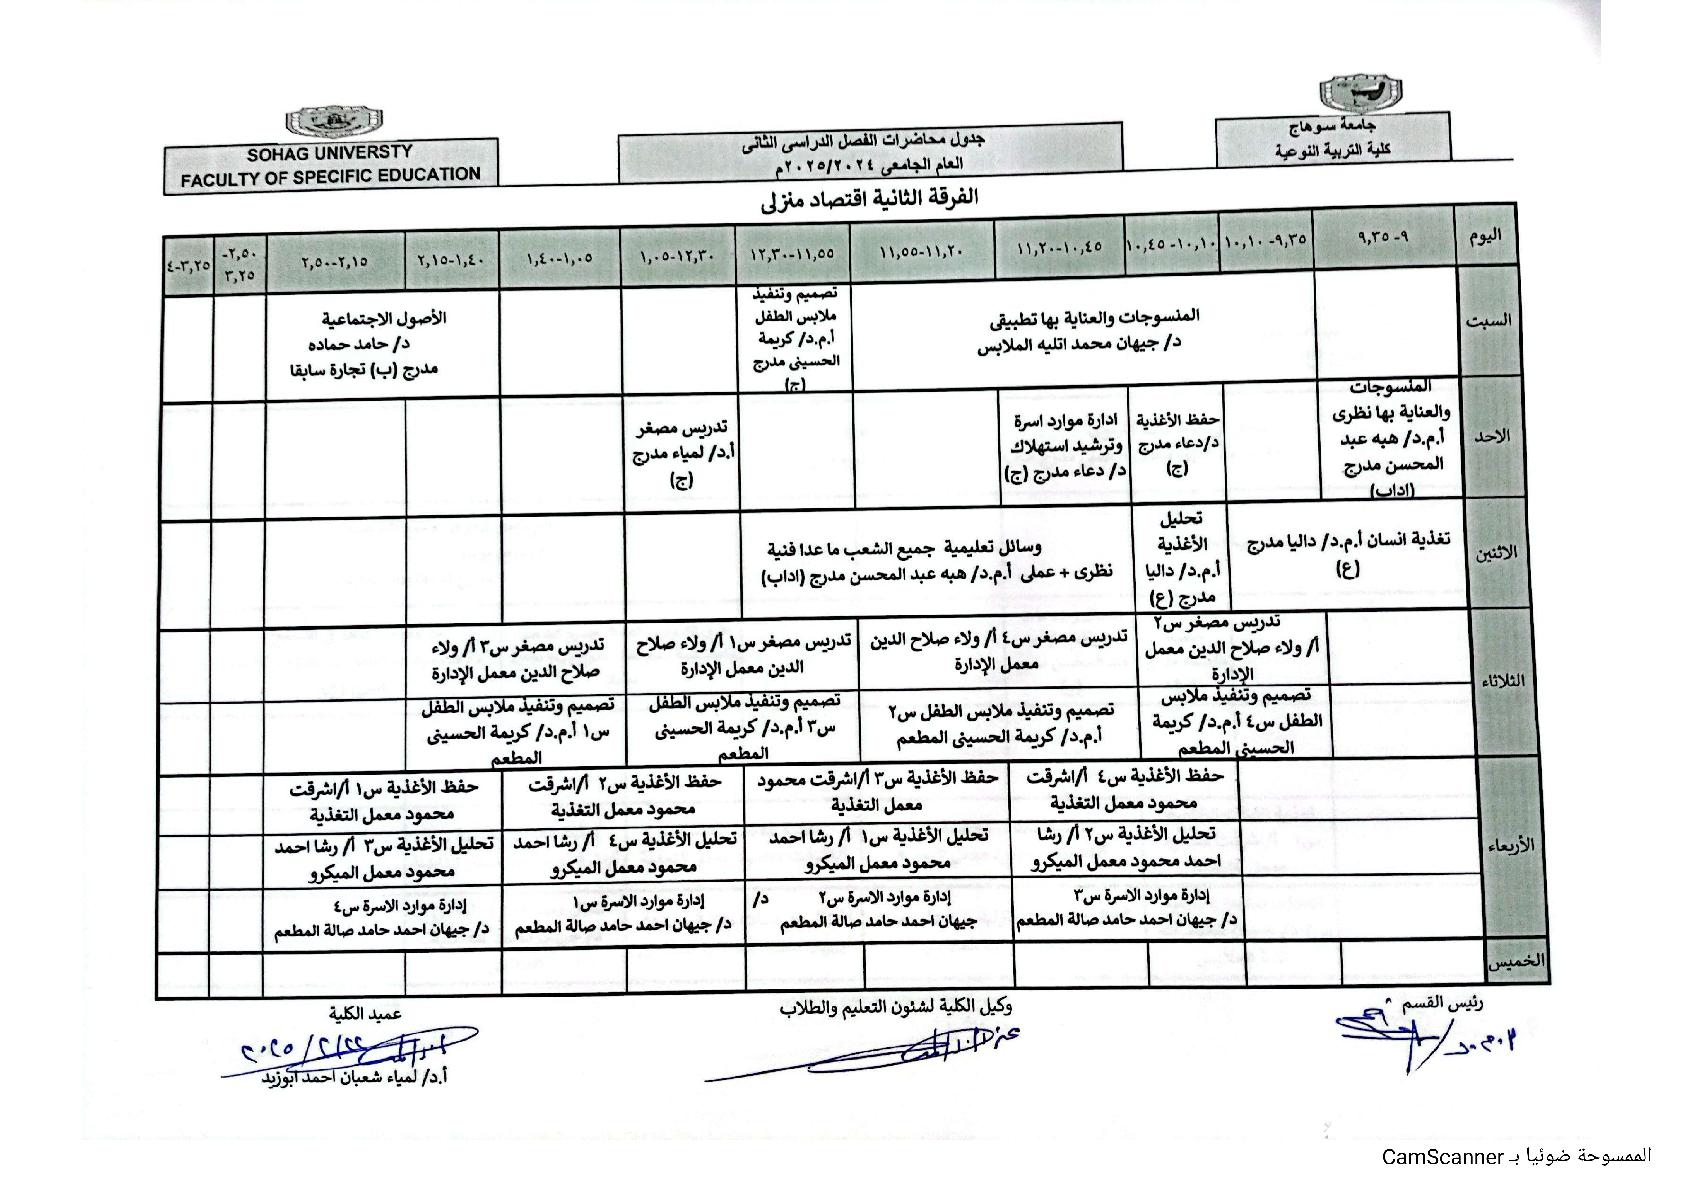 جامعة سوهاج
كلية التربية النوعية
جدول محاضرات الفصل الدراسى الثانى
العام الجامعى ٢٠٢٥/٢٠٢٤م
SOHAG UNIVERSTY
FACULTY OF SPECIFIC EDUCATION
الفرقة الثانية اقتصاد منزلى
اليوم
٩- ٩,٣٥
٩,٣٥- ١٠,١٠
١٠,١٠- ١٠,٤٥
١٠,٤٥-١١,٢٠
١١,٢٠-١١,٥٥
١١,٥٥-١٢,٣٠
١٢,٣٠-١,٠٥
١,٠٥-١,٤٠
١,٤٠-٢,١٥
٢,١٥-٢,٥٠
٢,٥٠-
٣,٢٥
٣,٢٥-٤
السبت
المنسوجات والعناية بها تطبيقى
د/ جيهان محمد اتليه الملابس
تصميم وتنفيذ
ملابس الطفل
أ.م.د/ كريمة
الحسينى مدرج
(ج)
الأصول الاجتماعية
د/ حامد حماده
مدرج (ب) تجارة سابقا
الاحد
المنسوجات
والعناية بها نظرى
أ.م.د/ هبه عبد
المحسن مدرج
(اداب)
حفظ الأغذية
د/دعاء مدرج
(ج)
ادارة موارد اسرة
وترشيد استهلاك
د/ دعاء مدرج (ج)
تدريس مصغر
أ.د/ لمياء مدرج
(ج)
الاثنين
تغذية انسان أ.م.د/ داليا مدرج
(ع)
تحليل
الأغذية
أ.م.د/ داليا
مدرج (ع)
وسائل تعليمية جميع الشعب ما عدا فنية
نظرى + عملى أ.م.د/ هبه عبد المحسن مدرج (اداب)
الثلاثاء
تدريس مصغر س٢
أ/ ولاء صلاح الدين معمل
الإدارة
تدريس مصغر س٤ أ/ ولاء صلاح الدين
معمل الإدارة
تدريس مصغر س١ أ/ ولاء صلاح
الدين معمل الإدارة
تدريس مصغر س٣ أ/ ولاء
صلاح الدين معمل الإدارة
تصميم وتنفيذ ملابس
الطفل س٤ أ.م.د/ كريمة
الحسينى المطعم
تصميم وتنفيذ ملابس الطفل س٢
أ.م.د/ كريمة الحسينى المطعم
تصميم وتنفيذ ملابس الطفل
س٣ أ.م.د/ كريمة الحسينى
المطعم
تصميم وتنفيذ ملابس الطفل
س١ أ.م.د/ كريمة الحسينى
المطعم
الأربعاء
حفظ الأغذية س٤ أ/اشرقت
محمود معمل التغذية
حفظ الأغذية س٣ أ/اشرقت محمود
معمل التغذية
حفظ الأغذية س٢ أ/اشرقت
محمود معمل التغذية
حفظ الأغذية س١ أ/اشرقت
محمود معمل التغذية
تحليل الأغذية س٢ أ/ رشا
احمد محمود معمل الميكرو
تحليل الأغذية س١ أ/ رشا احمد
محمود معمل الميكرو
تحليل الأغذية س٤ أ/ رشا احمد
محمود معمل الميكرو
تحليل الأغذية س٣ أ/ رشا احمد
محمود معمل الميكرو
إدارة موارد الاسرة س٣
د/ جيهان احمد حامد صالة المطعم
إدارة موارد الاسرة س٢ د/
جيهان احمد حامد صالة المطعم
إدارة موارد الاسرة س١
د/ جيهان احمد حامد صالة المطعم
إدارة موارد الاسرة س٤
د/ جيهان احمد حامد صالة المطعم
الخميس
رئيس القسم
وكيل الكلية لشئون التعليم والطلاب
عميد الكلية
أ.م.د/
٢٠٢٥/٢/٢٢
أ.د/ لمياء شعبان احمد ابوزيد
الممسوحة ضوئيا بـ CamScanner